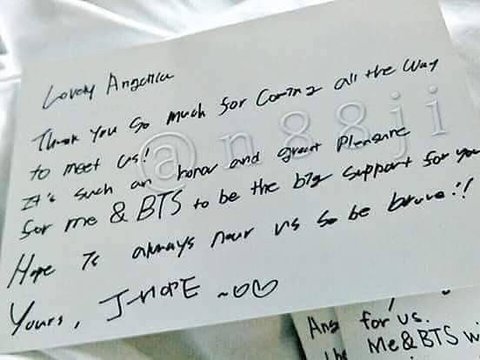 Lovely Angelica
Thank You So much for Coming all the way
to meet us!
It's such an honor and great Pleasure
for me & BTS to be the big support for you
Hope is always near us so be brave!!
Yours, J-HOPE ~♡♡
@n88ji
for us.
Me & BTS